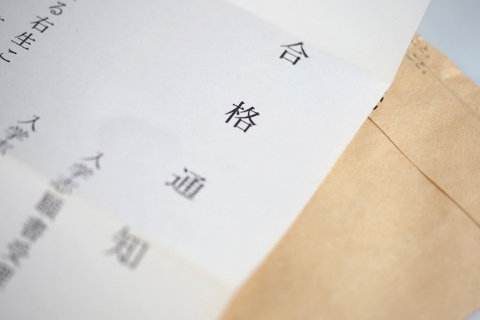 合格通知
入学志願書受理
入学
る右生に